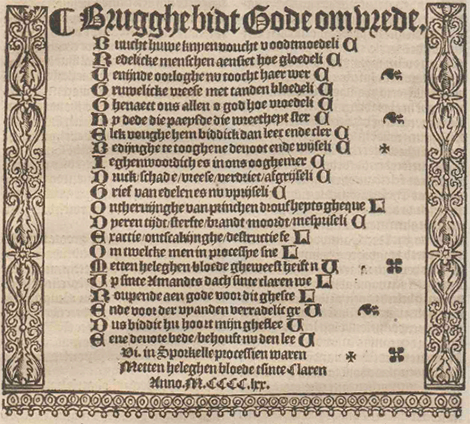 Brugghe bidt Gode om vrede.
Buucht huwe knyen voucht v oodtmoedeli C
Redelicke menschen aensiet hoe gloedeli C
Venijnde oorloghe nv toocht haer wer C
Gruwelicke vreese met tanden bloedeli C
Ghenaect ons allen o god hoe vroedeli C
Hy dede die die wreetheyt ster C
Elck voughe hem biddick dan leec ende cler C
Bedijnghe te tooghene devoot ende wijseli C
Ieghenwoordich es in ons ooghemer C
Druck/schade/vreese/verdriet/afgrijseli C
Grief van edelen es nv vprijseli C
Ontheruijnghe van princhen droufheyts gheque L
Dyeren tijdt/sterfte/brandt moordt/mespriseli C
Exactie/ontsakijnghe/destructie fe L
Om twelcke men in processye sne L
Metten heleghen bloede gheweest heift n V
Vp sinte Amandts dach sinte claren we L
Roupende aen gode voor dit ghesce L
Ende voor der vyanden verradelic gr V
Dus biddic hu hoort mijn C
Eene devote bede/behouft nv den lee C
Vi. in Sporkelle processien waren
Metten heleghen bloede tsinte Claren
Anno.M.CCCC.lxx.